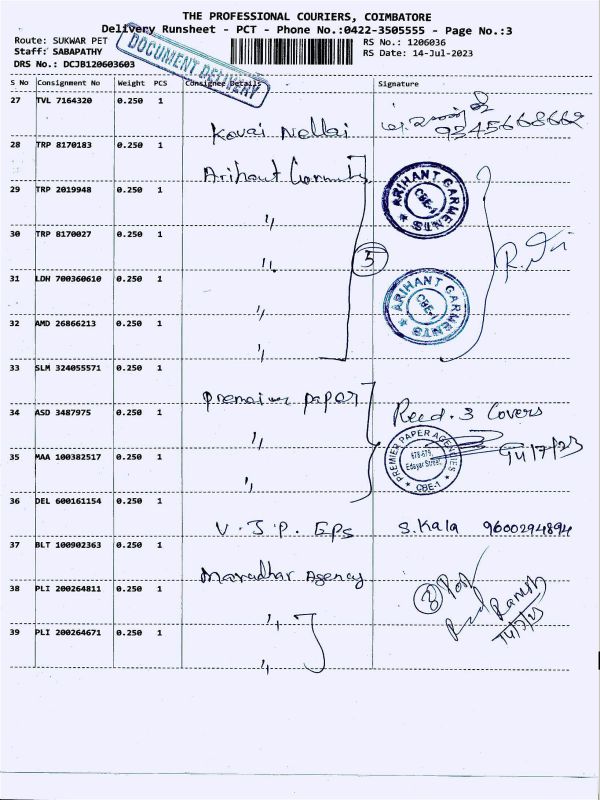 THE PROFESSIONAL COURIERS, COIMBATORE
Delivery Runsheet - PCT - Phone No.:0422-3505555 - Page No.:3
Route: SUKWAR PET
RS No.: 1206036
Staff: SABAPATHY
RS Date: 14-Jul-2023
DRS No.: DCJB120603603
DOCUMENT DELIVERY
S No Consignment No Weight PCS Consignee Details Signature
27 TVL 7164320 0.250 1
Kovai Nellai 9345668662
28 TRP 8170183 0.250 1
Arihant Garments
ARIHANT GARMENTS CBE-1
29 TRP 2019948 0.250 1
"
30 TRP 8170027 0.250 1
" 5
31 LDH 700360610 0.250 1
"
ARIHANT GARMENTS CBE-1
32 AMD 26866213 0.250 1
"
33 SLM 324055571 0.250 1
Premaiur paper Recd. 3 Covers
34 ASD 3487975 0.250 1
"
PREMIER PAPER AGENCIES Edayar Street, CBE-1
14/7/23
35 MAA 100382517 0.250 1
"
36 DEL 600161154 0.250 1
V.J.P. EPS S. Kala 9600294894
37 BLT 100902363 0.250 1
Marudhar Agency
38 PLI 200264811 0.250 1
" 3 Post
Recd Ramesh
14/7/23
39 PLI 200264671 0.250 1
"